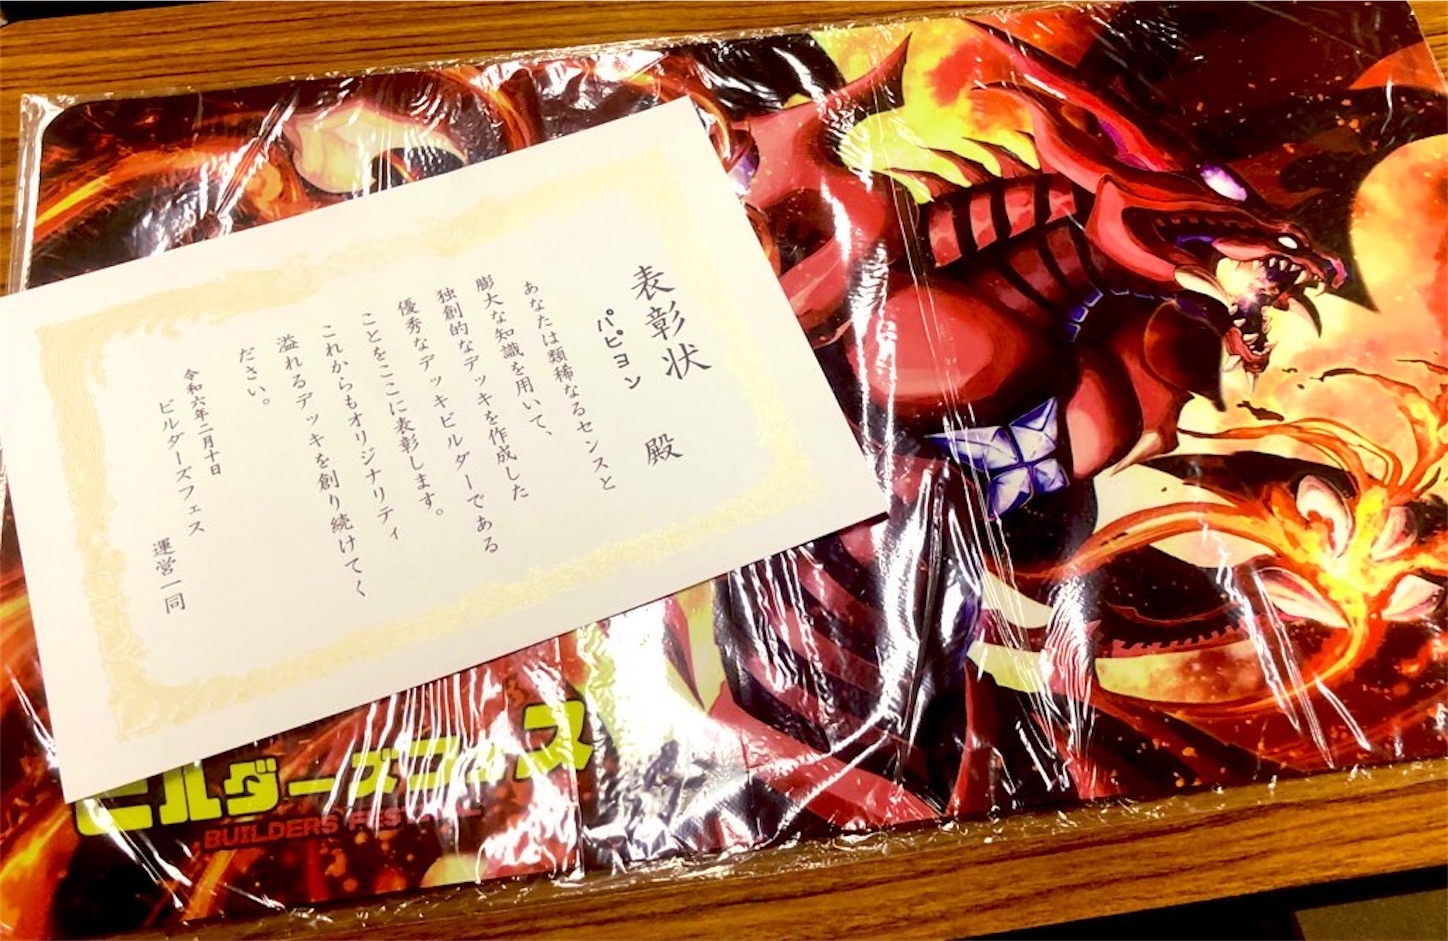 表彰状
パピヨン 殿
あなたは類稀なるセンスと
膨大な知識を用いて、
独創的なデッキを作成した
優秀なデッキビルダーである
ことをここに表彰します。
これからもオリジナリティ
溢れるデッキを創り続けてく
ださい。
令和六年二月十日
ビルダーズフェス 運営一同
ビルダーズフェス
BUILDERS